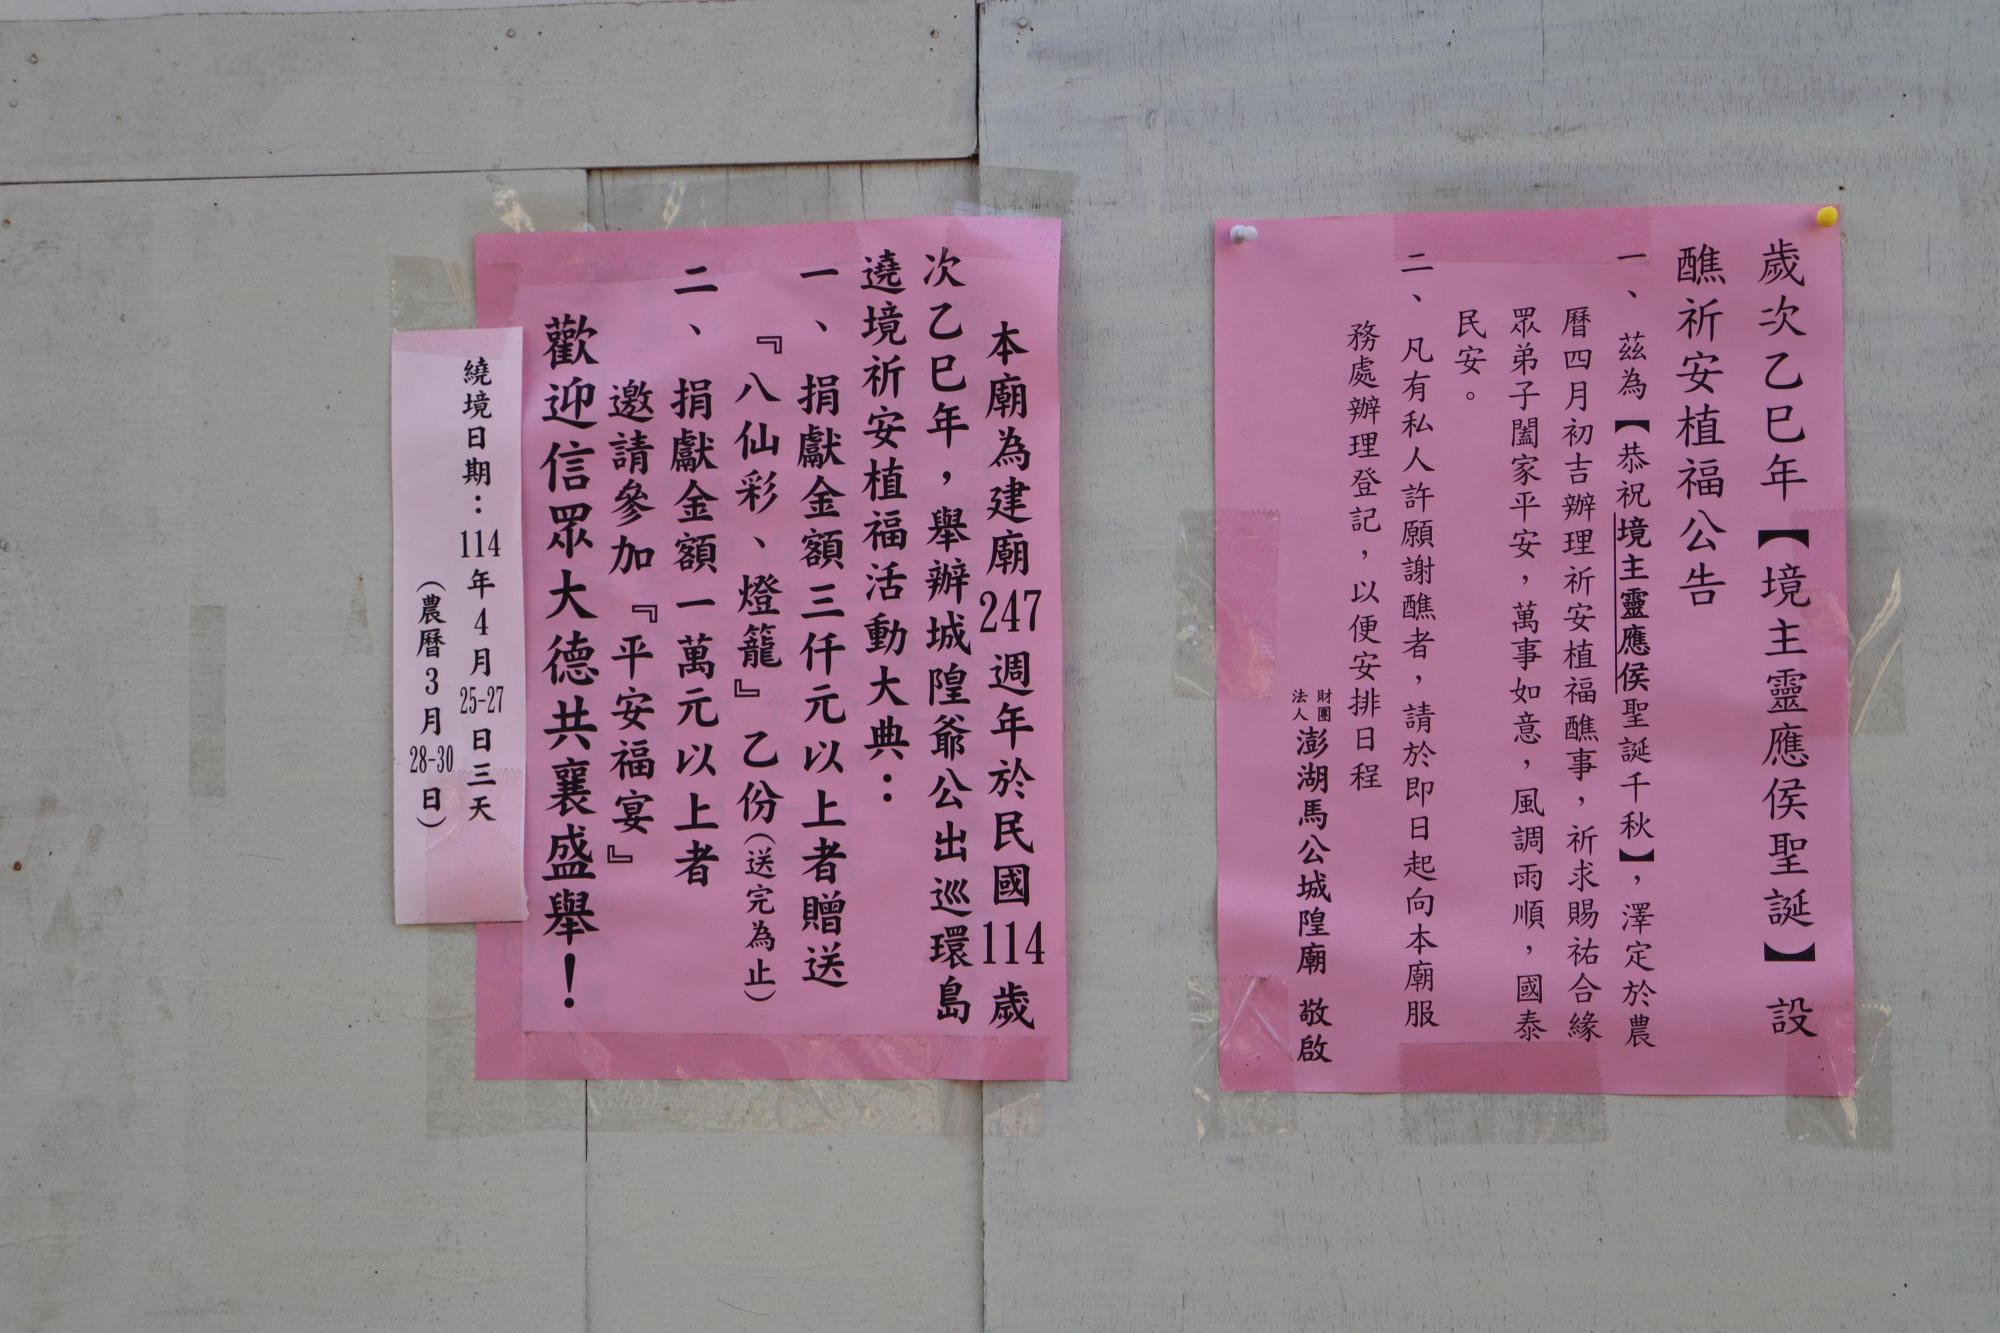 歲次乙巳年【境主靈應侯聖誕】設
醮祈安植福公告
一、茲為【恭祝境主靈應侯聖誕千秋】，澤定於農
曆四月初吉辦理祈安植福醮事，祈求賜祐合緣
眾弟子闔家平安，萬事如意，風調雨順，國泰
民安。
二、凡有私人許願謝醮者，請於即日起向本廟服
務處辦理登記，以便安排日程
財團法人澎湖馬公城隍廟 敬啟
本廟為建廟247週年於民國114歲
次乙巳年，舉辦城隍爺公出巡環島
遶境祈安植福活動大典：
一、捐獻金額三仟元以上者贈送
『八仙彩、燈籠』乙份(送完為止)
二、捐獻金額一萬元以上者
邀請參加『平安福宴』
歡迎信眾大德共襄盛舉！
繞境日期：114年4月25-27日三天
(農曆3月28-30日)